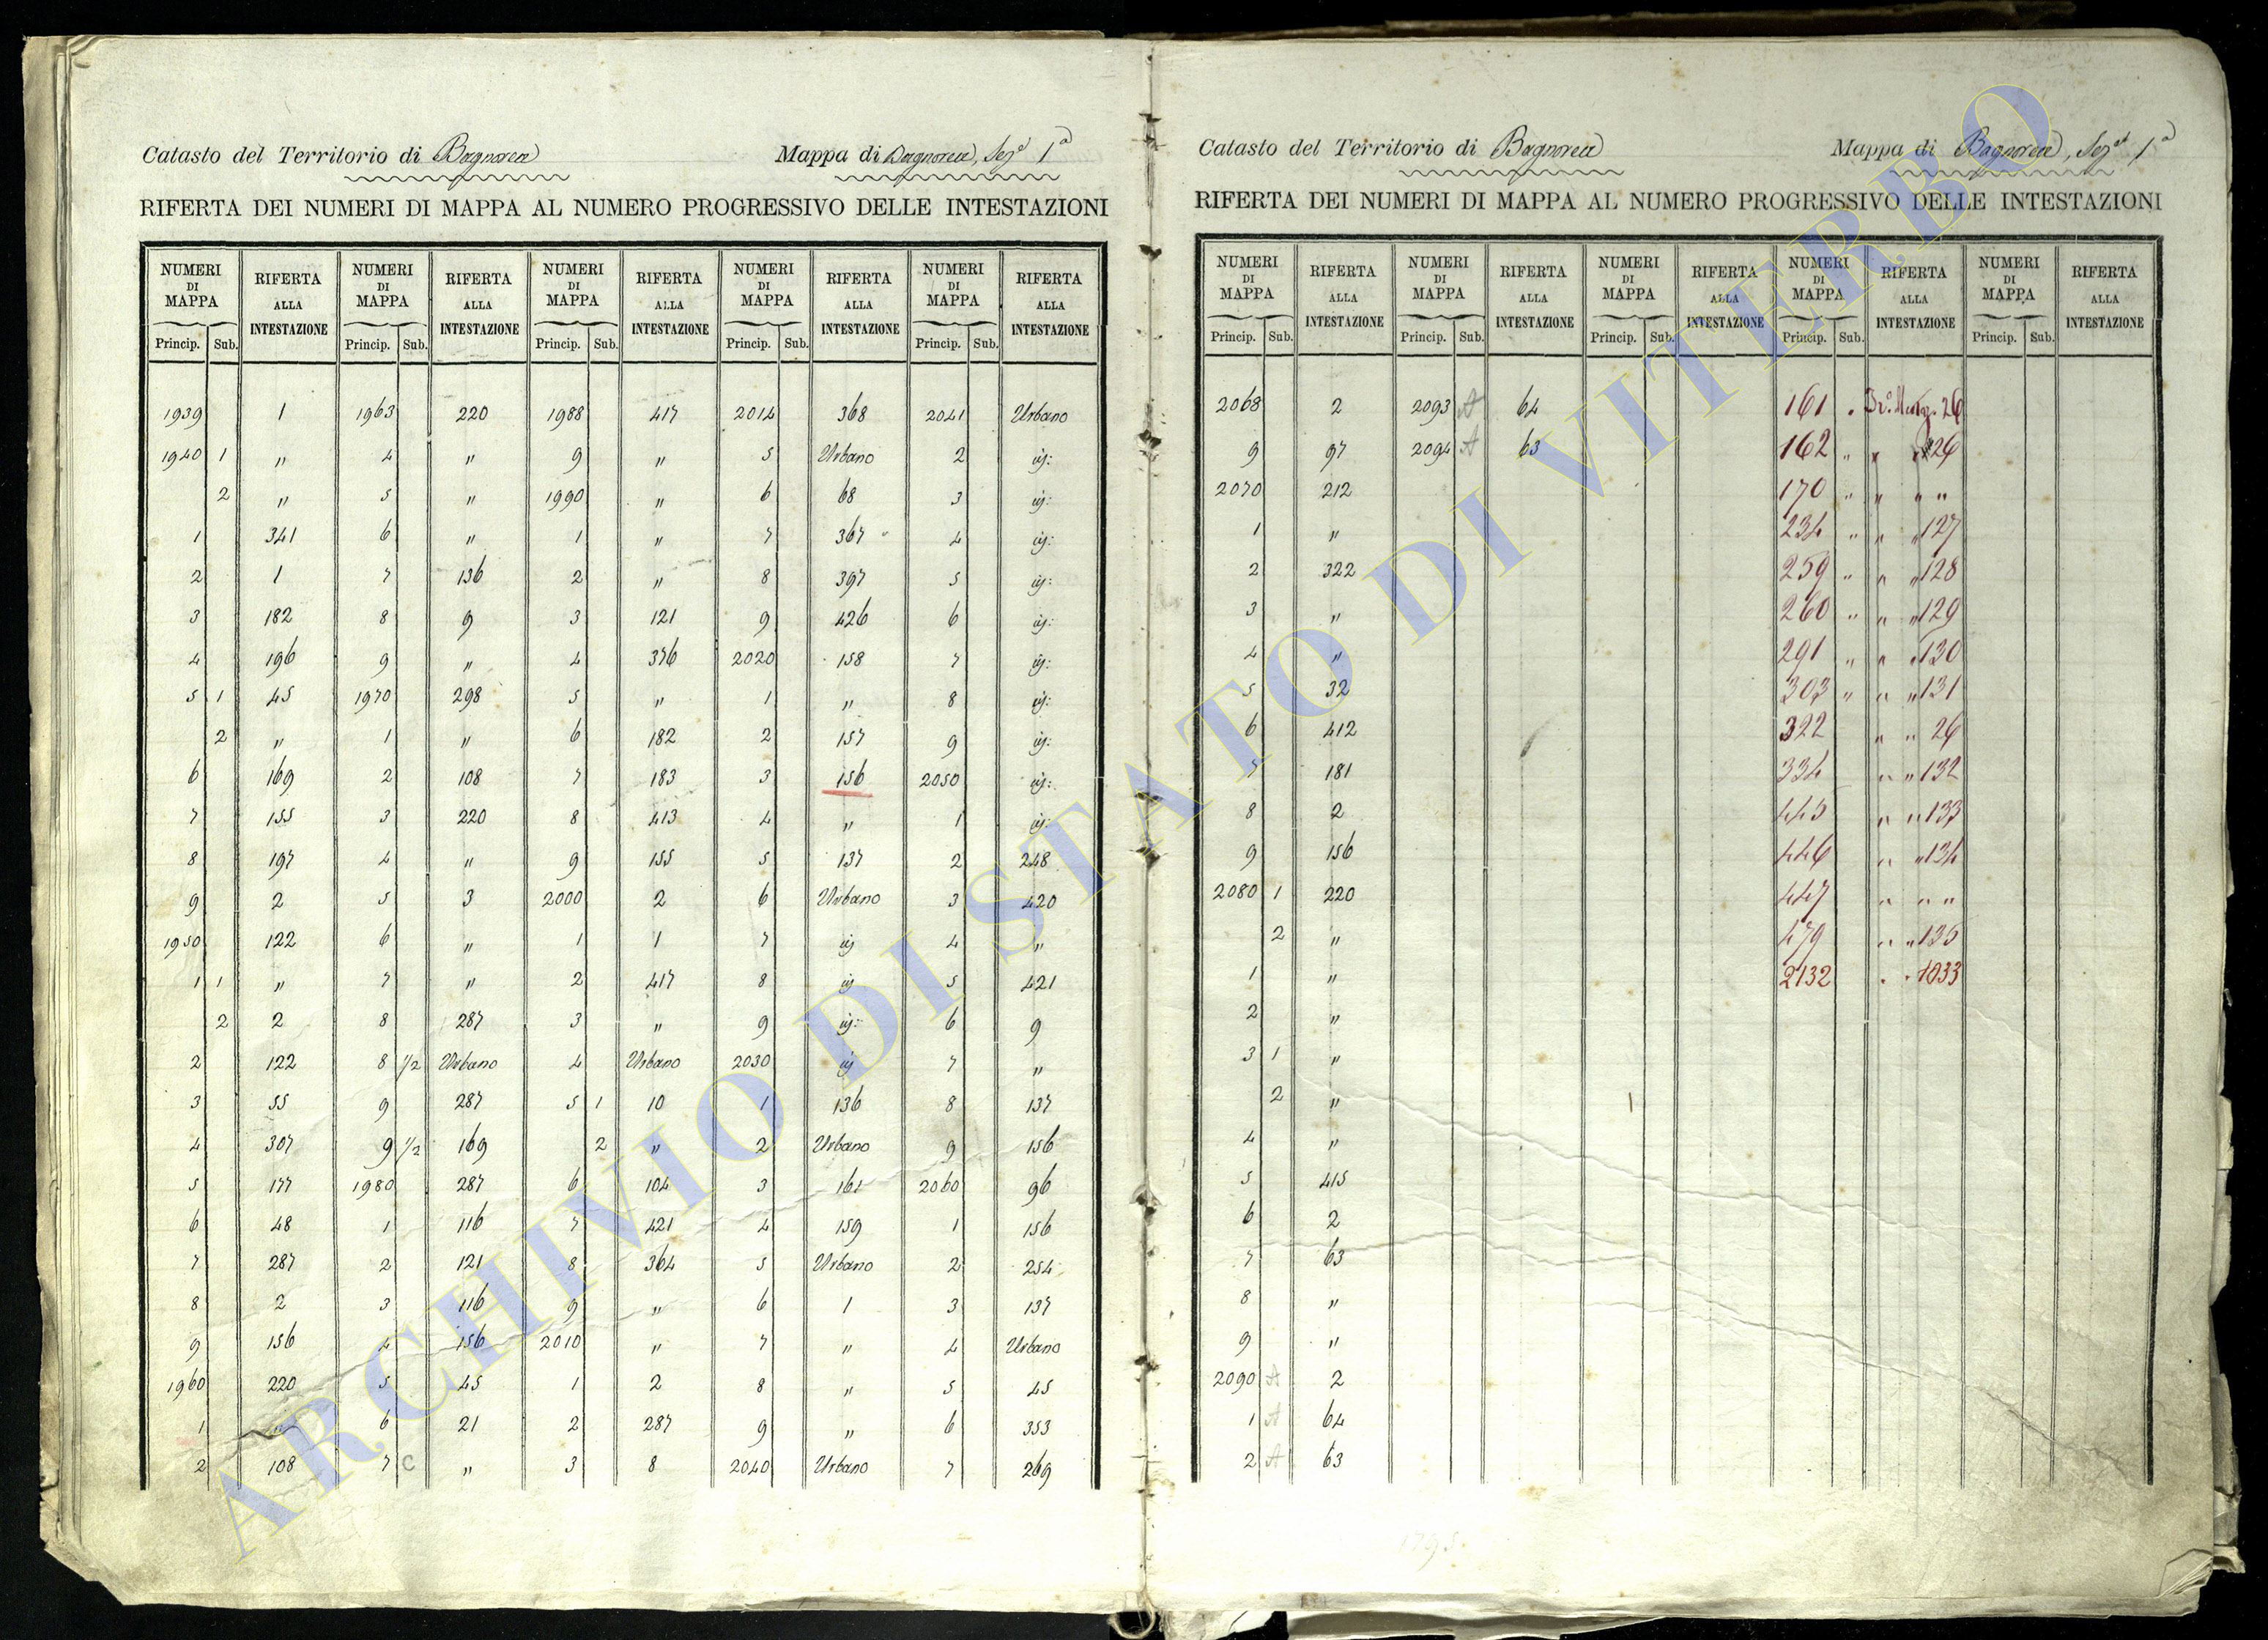 Catasto del Territorio di Bagnorea Mappa di Bagnorea, Sez.e 1a
RIFERTA DEI NUMERI DI MAPPA AL NUMERO PROGRESSIVO DELLE INTESTAZIONI
NUMERI DI MAPPA RIFERTA ALLA INTESTAZIONE NUMERI DI MAPPA RIFERTA ALLA INTESTAZIONE NUMERI DI MAPPA RIFERTA ALLA INTESTAZIONE NUMERI DI MAPPA RIFERTA ALLA INTESTAZIONE NUMERI DI MAPPA RIFERTA ALLA INTESTAZIONE
Princip. Sub. Princip. Sub. Princip. Sub. Princip. Sub. Princip. Sub.
1939 1 1963 220 1988 417 2014 368 2041 Urbano
1940 1 " 4 " 9 " 5 Urbano 2 id:
2 " 5 " 1990 " 6 68 3 id:
1 341 6 " 1 " 7 367 4 id:
2 1 7 136 2 " 8 397 5 id:
3 182 8 9 3 121 9 426 6 id:
4 196 9 " 4 376 2020 158 7 id:
5 1 45 1970 298 5 " 1 " 8 id:
2 " 1 " 6 182 2 157 9 id:
6 169 2 108 7 183 3 156 2050 id:
7 155 3 220 8 413 4 " 1 id:
8 197 4 " 9 155 5 137 2 248
9 2 5 3 2000 2 6 Urbano 3 420
1950 122 6 " 1 1 7 id 4 "
1 1 " 7 " 2 417 8 id 5 421
2 2 8 287 3 " 9 id: 6 9
2 122 8 1/2 Urbano 4 Urbano 2030 id 7 "
3 55 9 287 5 1 10 1 136 8 137
4 307 9 1/2 169 2 " 2 Urbano 9 156
5 177 1980 287 6 104 3 161 2060 96
6 48 1 116 7 421 4 159 1 156
7 287 2 121 8 364 5 Urbano 2 254
8 2 3 116 9 " 6 1 3 137
9 156 4 156 2010 " 7 " 4 Urbano
1960 220 5 45 1 2 8 " 5 45
1 " 6 21 2 287 9 " 6 353
2 108 7 C " 3 8 2040 Urbano 7 269
Catasto del Territorio di Bagnorea Mappa di Bagnorea, Sez.e 1a
RIFERTA DEI NUMERI DI MAPPA AL NUMERO PROGRESSIVO DELLE INTESTAZIONI
NUMERI DI MAPPA RIFERTA ALLA INTESTAZIONE NUMERI DI MAPPA RIFERTA ALLA INTESTAZIONE NUMERI DI MAPPA RIFERTA ALLA INTESTAZIONE NUMERI DI MAPPA RIFERTA ALLA INTESTAZIONE NUMERI DI MAPPA RIFERTA ALLA INTESTAZIONE
Princip. Sub. Princip. Sub. Princip. Sub. Princip. Sub. Princip. Sub.
2068 2 2093 A 64 161 26
9 97 2094 A 63 162 " " 26
2070 212 170 " " " "
1 " 234 " " " 127
2 322 259 " " " 128
3 " 260 " " " 129
4 " 291 " " " 130
5 32 303 " " " 131
6 412 322 " " 26
7 181 334 " " 132
8 2 445 " " 133
9 156 446 " " 134
2080 1 220 447 " " "
2 " 479 " " 135
1 " 2132 1033
2 "
3 1 "
2 "
4 "
5 415
6 2
7 63
8 "
9 "
2090 A 2
1 A 64
2 A 63
ARCHIVIO DI STATO DI VITERBO